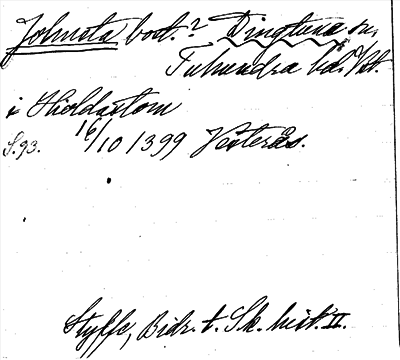 Johnsta bost.? Dingtuna sn,
Tuhundra hd. Vstl.
i Hioldastom
S. 93. 16/10 1399 Västerås.
Styffe, Bidr. t. Sk. hist. II.